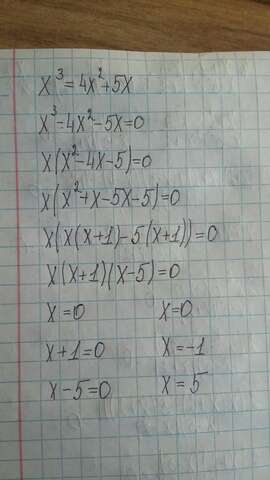 x³=4x²+5x
x³-4x²-5x=0
x(x²-4x-5)=0
x(x²+x-5x-5)=0
x(x(x+1)-5(x+1))=0
x(x+1)(x-5)=0
x=0 x=0
x+1=0 x=-1
x-5=0 x=5